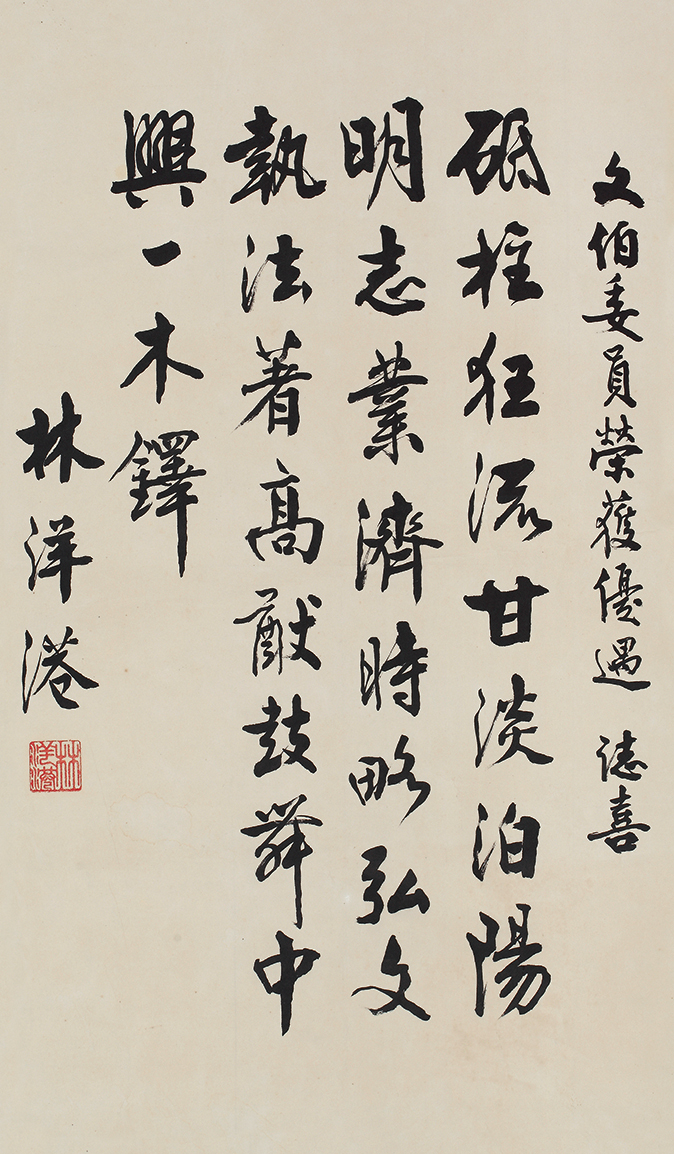 文伯委員榮獲優遇 誌喜
砥柱狂流甘淡泊陽
明志業濟時略弘文
執法著高猷鼓舞中
興一木鐸
林洋港
林洋港